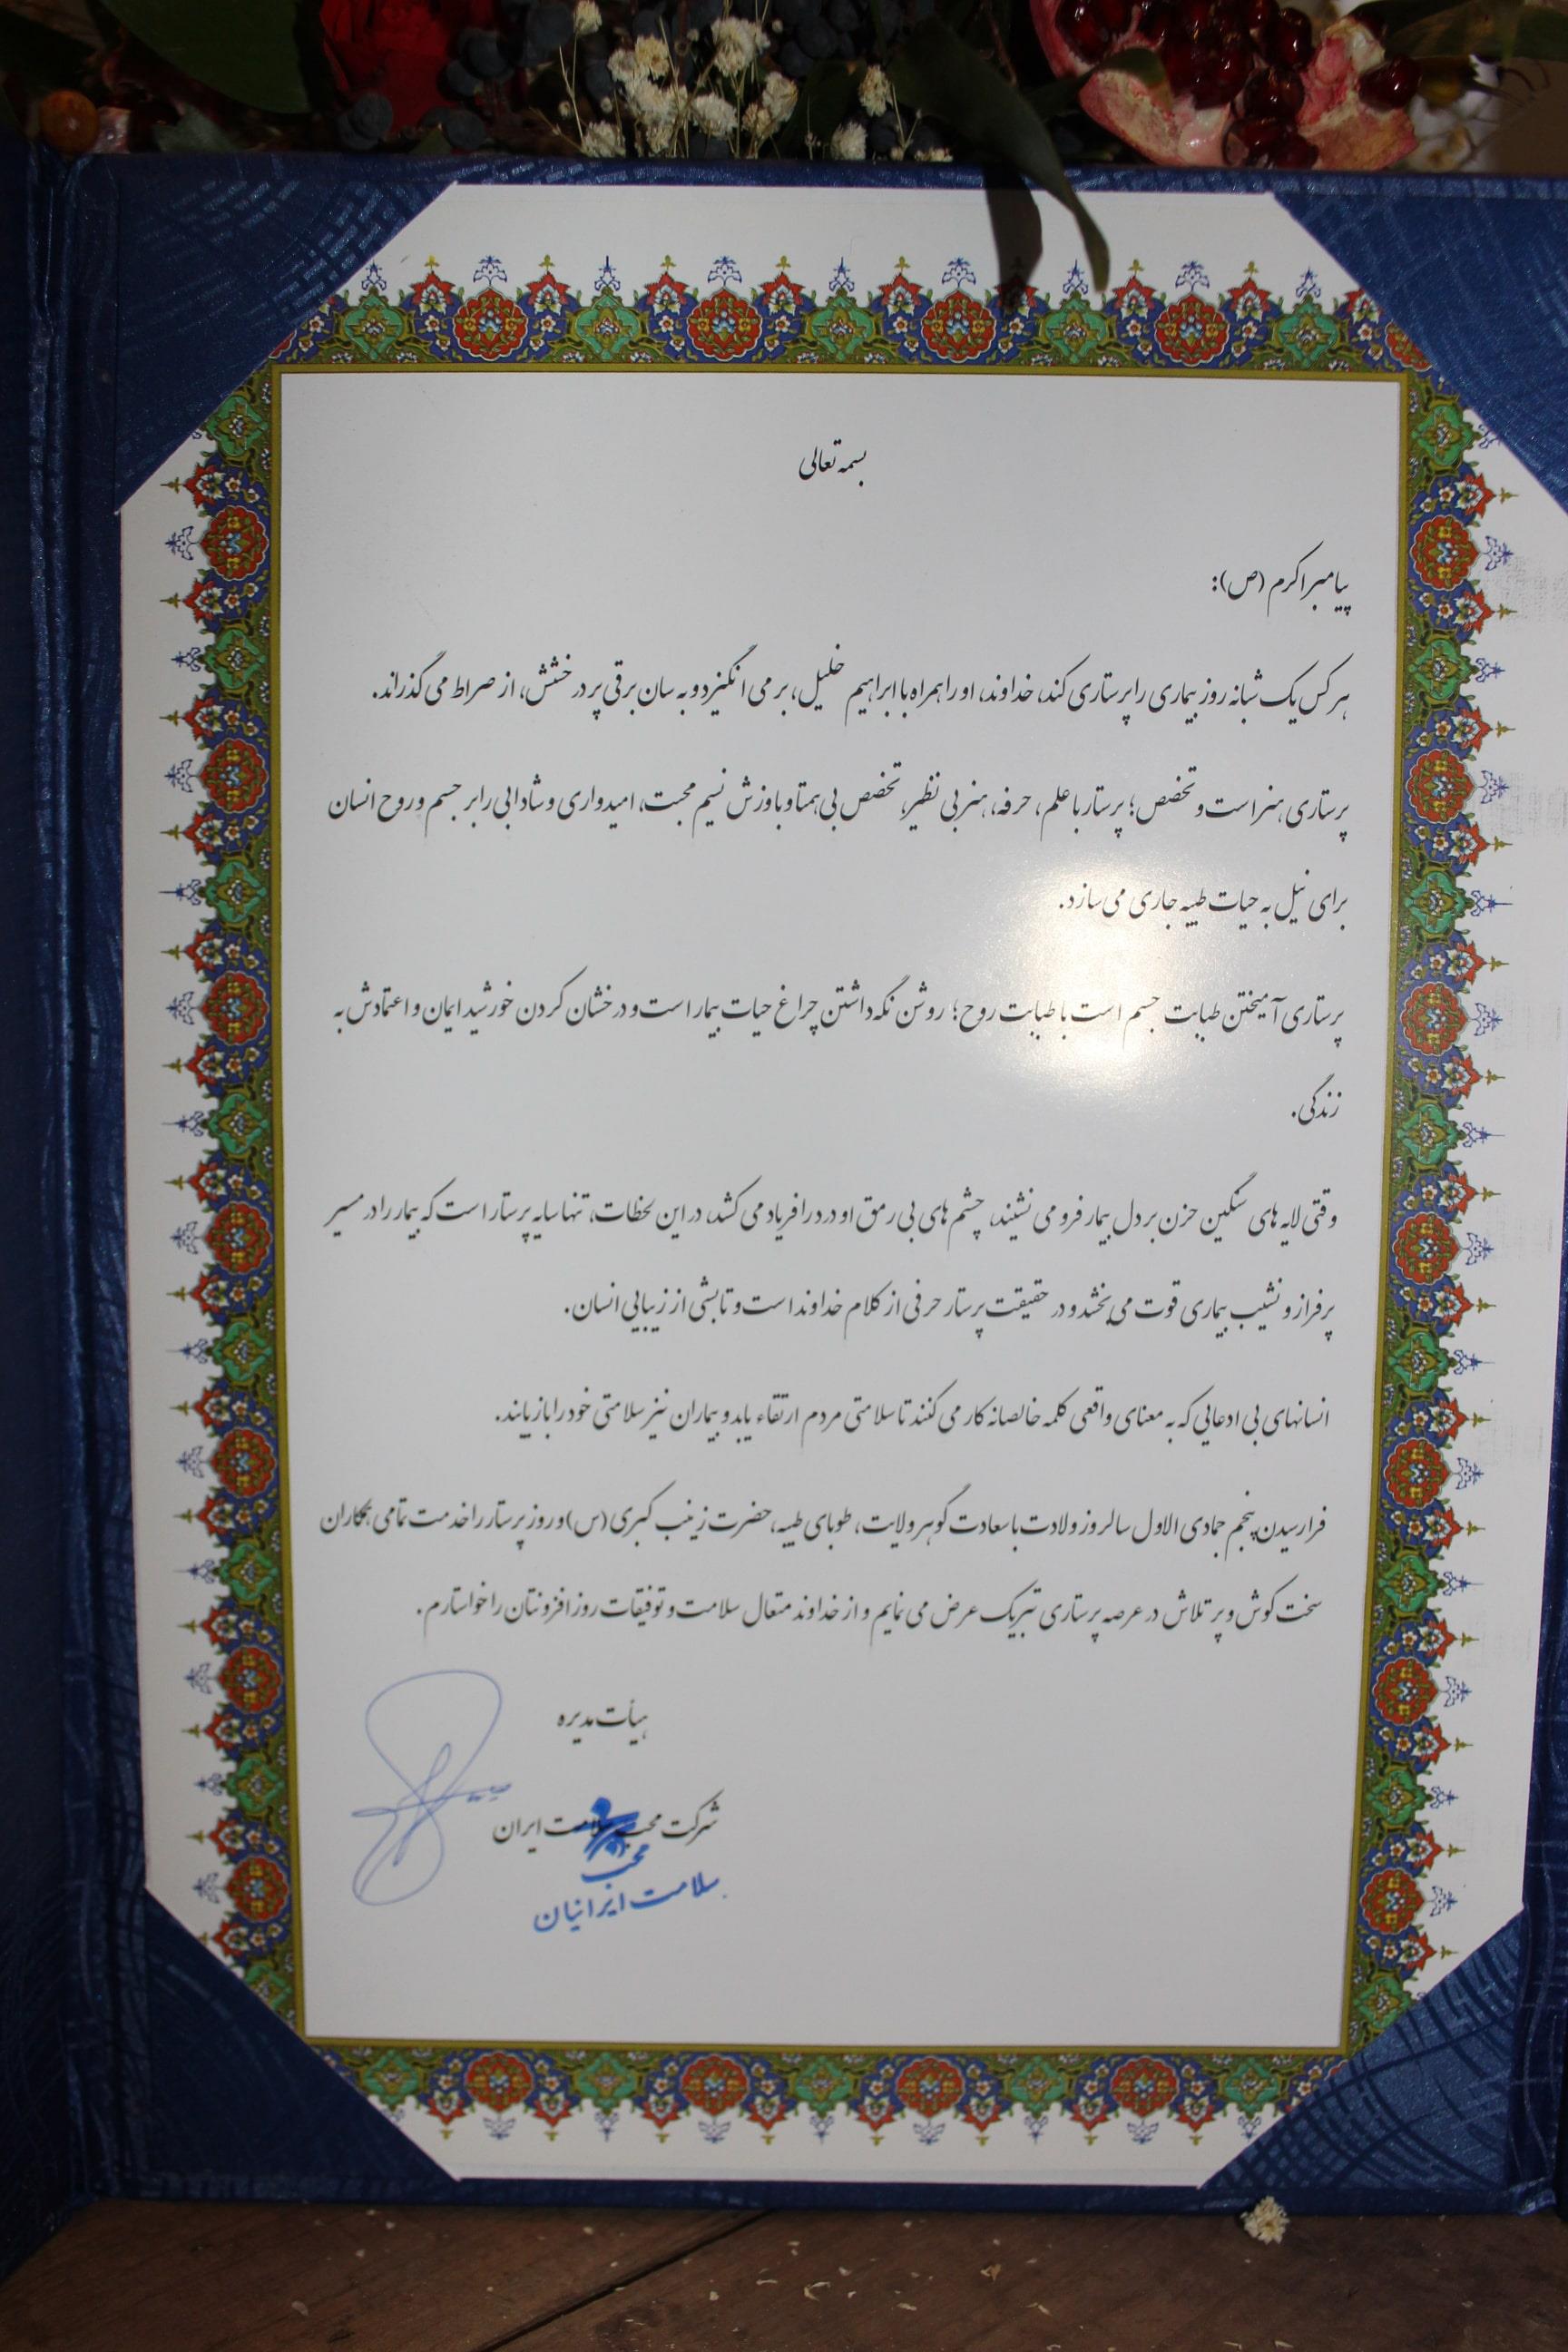 بسمه تعالی
پیامبر اکرم (ص):
هر کس یک شبانه روز بیماری را پرستاری کند، خداوند، او را همراه با ابراهیم خلیل، بر می انگیزد و به سان برقی پر درخشش، از صراط می گذراند.
پرستاری هنر است و تخصص؛ پرستار با علم، حرفه، هنر بی نظیر، تخصص بی همتا و با وزش نسیم محبت، امیدواری و شادابی را بر جسم و روح انسان
برای نیل به حیات طیبه جاری می سازد.
پرستاری آمیختن طبابت جسم است با طبابت روح؛ روشن نگه داشتن چراغ حیات بیمار است و درخشان کردن خورشید ایمان و اعتمادش به
زندگی.
وقتی لایه های سنگین حزن بر دل بیمار فرو می نشیند، چشم های بی رمق او درد را فریاد می کشد، در این لحظات، تنها سایه پرستار است که بیمار را در مسیر
پر فراز و نشیب بیماری قوت می بخشد و در حقیقت پرستار حرفی از کلام خداوند است و تابشی از زیبایی انسان.
انسانهای بی ادعایی که به معنای واقعی کلمه خالصانه کار می کنند تا سلامتی مردم ارتقاء یابد و بیماران نیز سلامتی خود را بازیابند.
فرارسیدن پنجم جمادی الاول سالروز ولادت با سعادت گوهر ولایت، طوبای طیبه، حضرت زینب کبری (س) و روز پرستار را خدمت تمامی همکاران
سخت کوش و پر تلاش در عرصه پرستاری تبریک عرض می نمایم و از خداوند متعال سلامت و توفیقات روزافزونتان را خواستارم.
هیأت مدیره
شرکت محب سلامت ایران
محب
سلامت ایرانیان